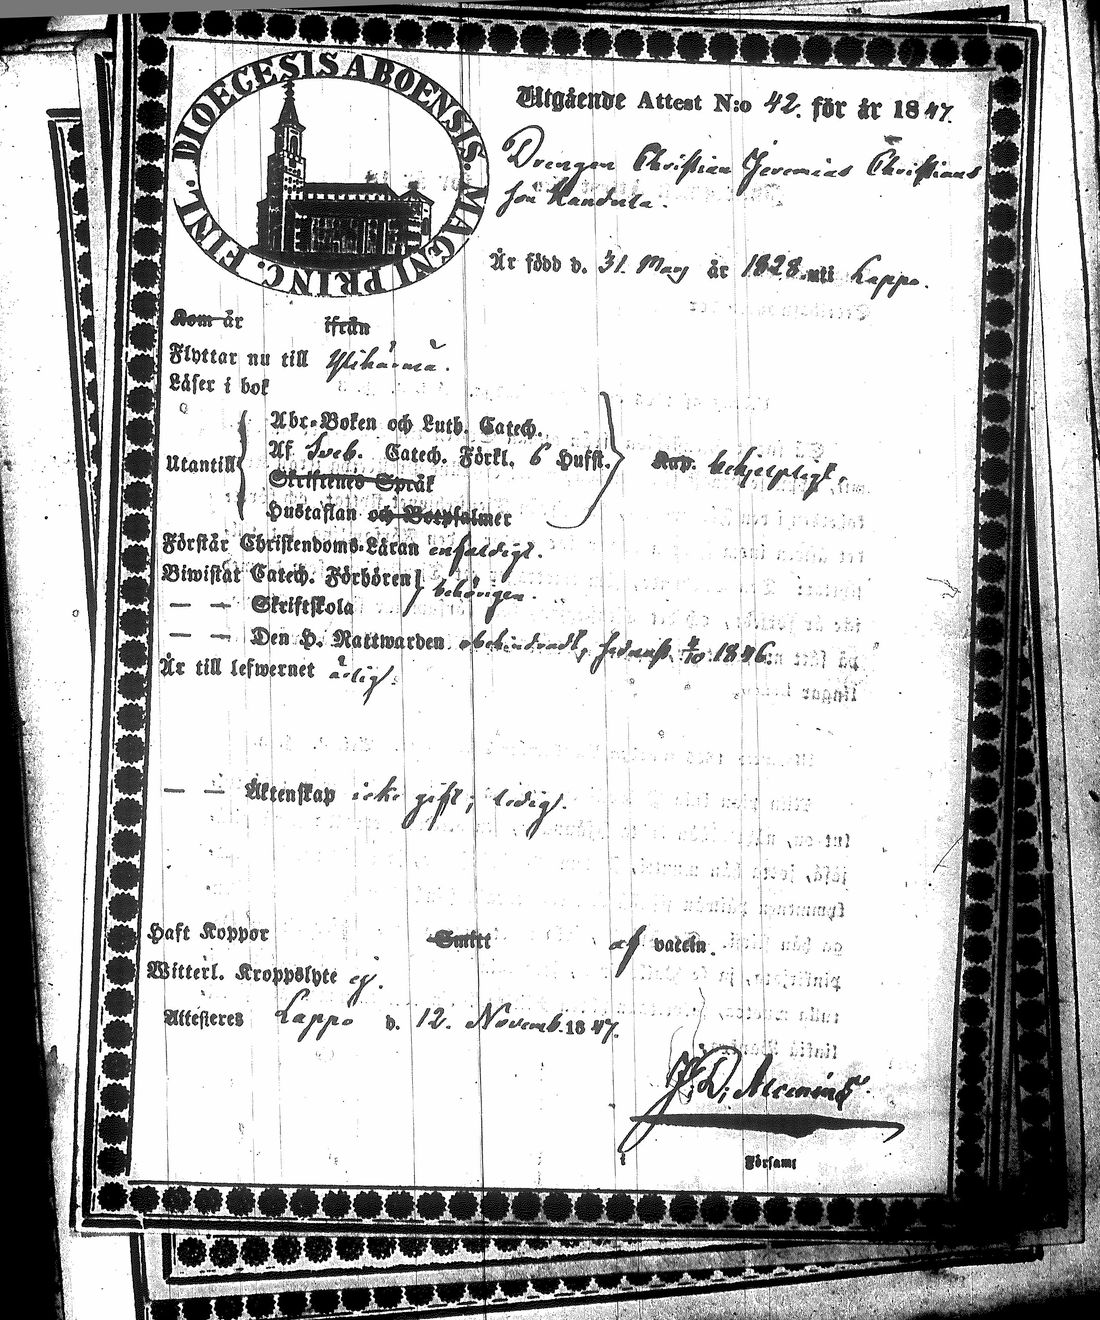 DIOECESIS ABOENSIS. MAGNI PRINC. FINL.
Utgående Attest N:o 42. för år 1847.
Drengen Christian Jeremias Christians
son Handula.
Är född d. 31 May år 1828 uti Lappo.
Kom år ifrån
Flyttar nu till Ylihärmä.
Läser i bok
Utantill
Abc-Boken och Luth. Catech.
Af Sveb. Catech. Förkl. 6 Hufst. Kap. behjelpligt.
Skriftenes Språk
Hustaflan och Botpsalmer
Förstår Christendoms-Läran enfaldigt.
Biwistat Catech. Förhören behörigen.
— — Skriftskola
— — Den H. Nattwarden obehindradt, sednast 4/10 1846.
Är till lefwernet ärlig.
— — Äktenskap icke gift; ledig.
Haft Koppor Smitt af vaccin.
Witterl. Kroppslyte ej.
Attesteras Lappo d. 12. Novemb. 1847.
J. D. Alcenius
i Församl